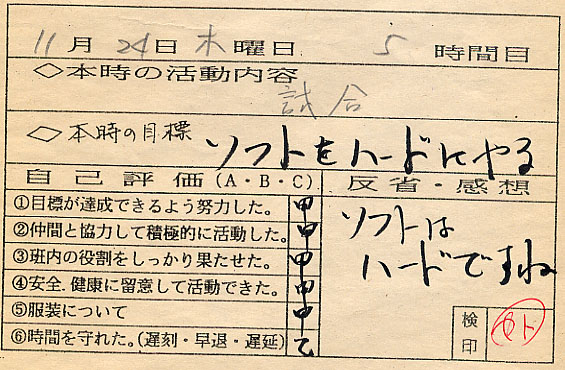 11月24日木曜日 5時間目
◇本時の活動内容
試合
◇本時の目標 ソフトをハードにやる
自己評価(A・B・C) 反省・感想
①目標が達成できるよう努力した。 甲
②仲間と協力して積極的に活動した。 甲
③班内の役割をしっかり果たせた。 甲
④安全.健康に留意して活動できた。 甲
⑤服装について 甲
⑥時間を守れた。(遅刻・早退・遅延) 乙
ソフトは
ハードですね
検印